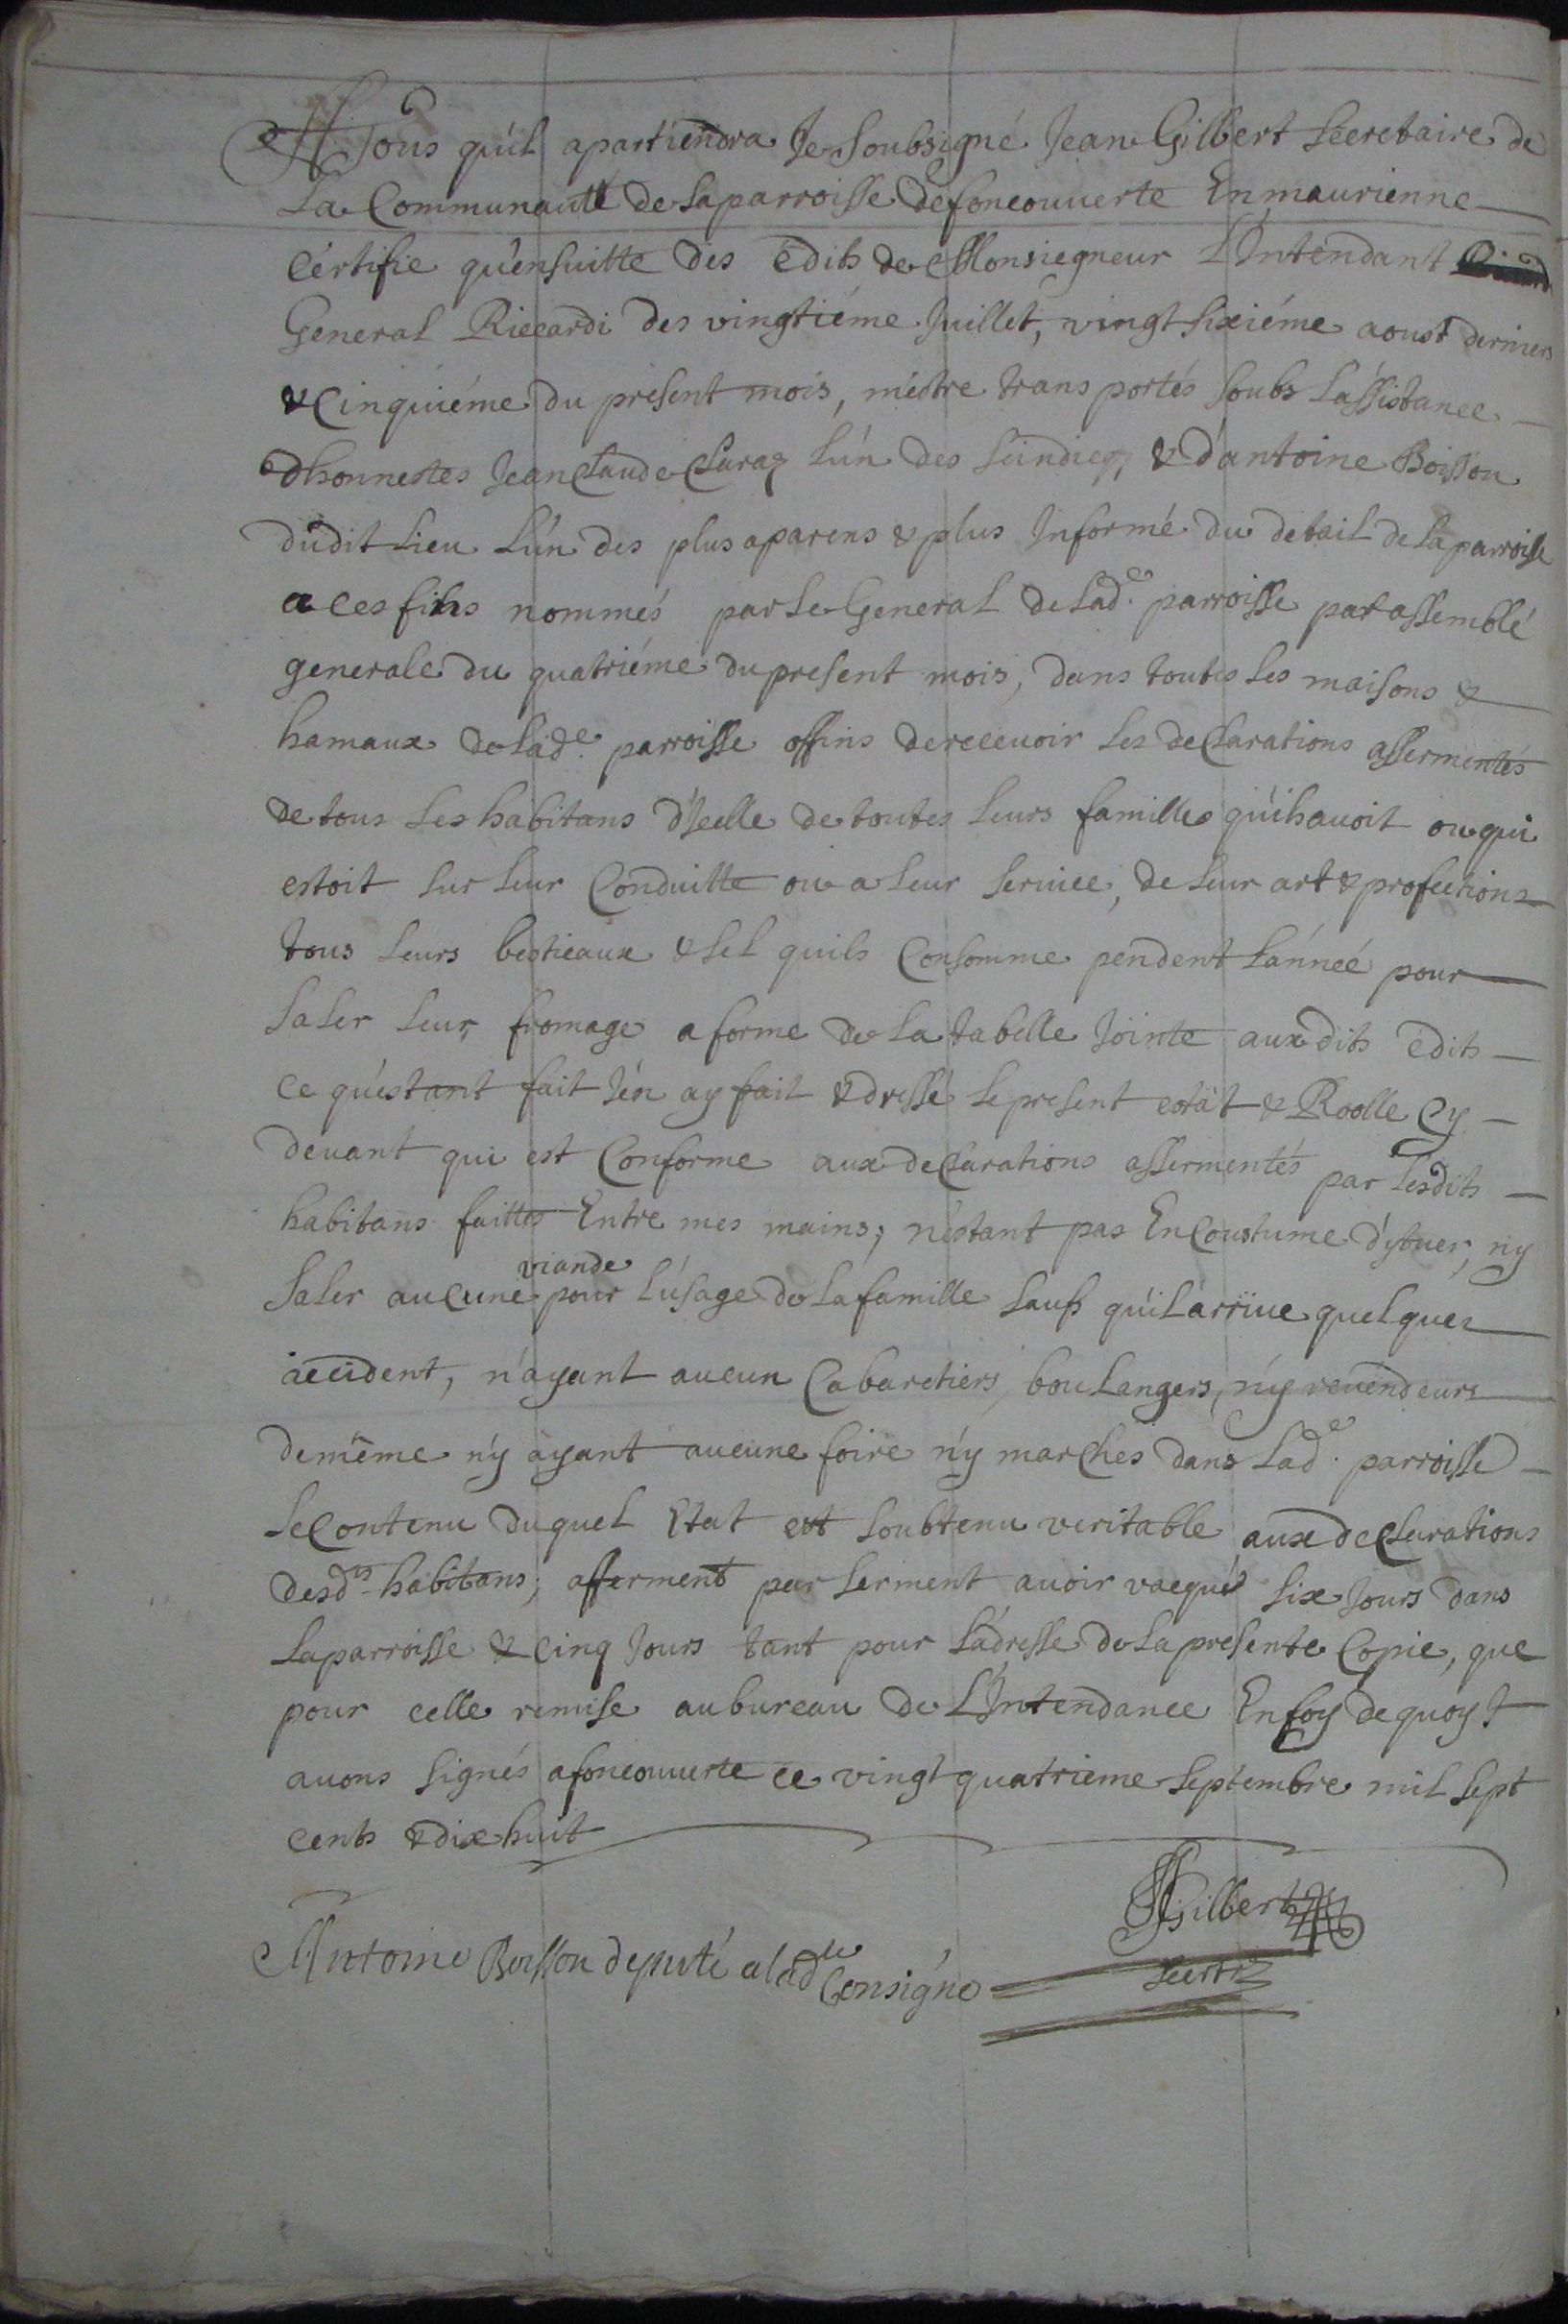 A Tous qu'il apartiendra Je Soubsigné Jean Gilbert Secretaire de
La Communauté de la parroisse de foncouuerte En maurienne
Cértifie qu'ensuitte des édits de Monsiegneur L'Intendant
General Riccardi des vingtiéme Juillet, vingt sixiéme aoust derniers
& Cinquiéme du present mois, m'éstre trans portés soubs L'assistance
d'honnestes Jean Claude Claraz L'ún des scindicqz, & d'antoine Boisson
dudit Lieu L'ún des plus aparens & plus Informé du detail de la parroisse
a ces fins nommés par Le General de Lad.e parroisse par assemblé
generale du quatriéme du present mois, dans toutes Les maisons &
hamaux de Lad.e parroisse affins de receuoir Les declarations assermentés
de tous Les habitans d'Icelle de toutes Leurs familles qu'ihauoit ou qui
estoit sur Leur Conduitte ou a Leur seruice, de Leur art & profections
tous Leurs bestieaux & sel quils Consomme pendent L'année pour
saler Leur fromage a forme de La tabelle Jointe auxdits édits
ce qu'estant fait J'én ay fait & dressé Le present estàt & Roolle Cy
deuant qui est Conforme aux declarations assermentés par Lesdits
habitans faittes Entre mes mains; n'éstant pas En Coustume d'ytuer, ny
saler aucune viande pour L'úsage de La famille sauf qu'il arriue quelques
accident, n'ayant aucun Cabaretiers, boulangers, n'y reuendeurs
de mëme n'y ayant aucune foire n'y marches dans Lad.e parroisse
Le Contenu duquel Etat est soubtenu veritable aux declarations
desd.ts habitans; afferment par serment auoir vacqués six Jours dans
La parroisse & Cinq Jours tant pour L'ádresse de La presente Copie, que
pour celle remise au bureau de L'Intendance En foy de quoy J
auons signés a foncouuerte ce vingt quatrieme septembre mil sept
cents & dix huit
JGilbert
Antoine Boisson deputé a lad.te Consigne
Secretr